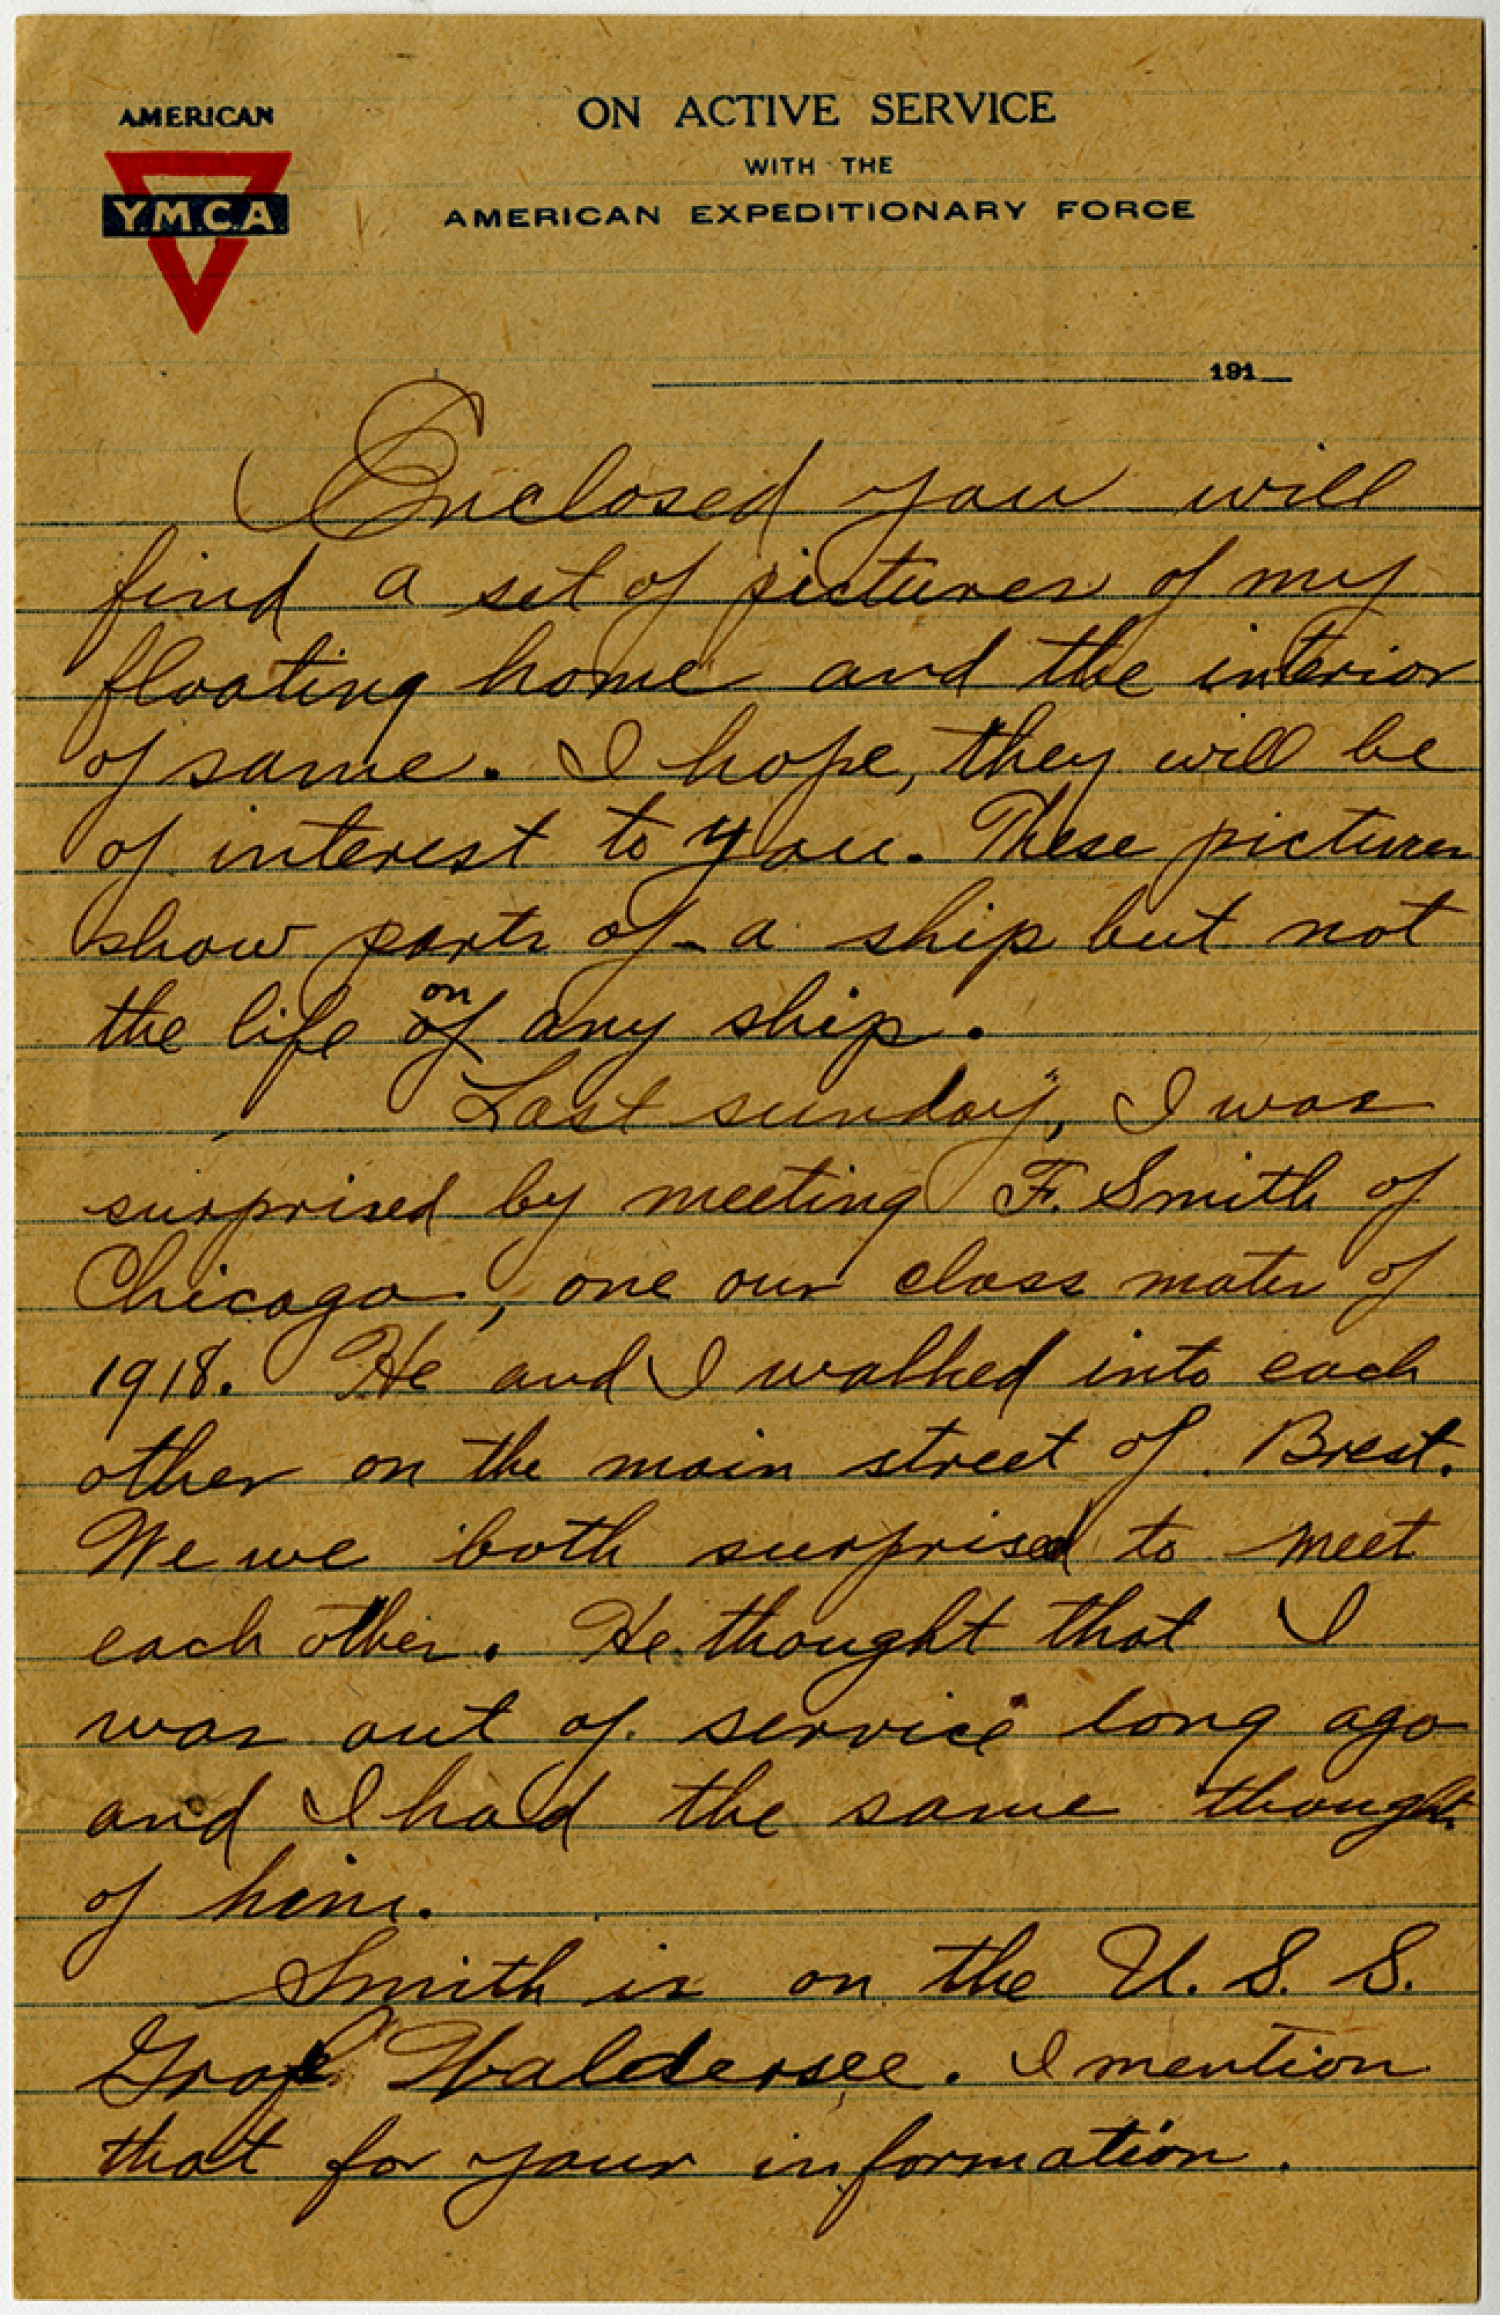 AMERICAN
Y.M.C.A.
ON ACTIVE SERVICE
WITH THE
AMERICAN EXPEDITIONARY FORCE
191
Enclosed you will
find a set of pictures of my
floating home and the interior
of same. I hope, they will be
of interest to you. These pictures
show parts of a ship but not
on
the life of any ship.
Last sunday, I was
surprised by meeting F. Smith of
Chicago, one our class mates of
1918. He and I walked into each
other on the main street of Brest.
We we both surprised to meet
each other. He thought that I
was out of service long ago
and I had the same thought
of him.
Smith is on the U. S. S.
Graf Waldersee. I mention
that for your information.